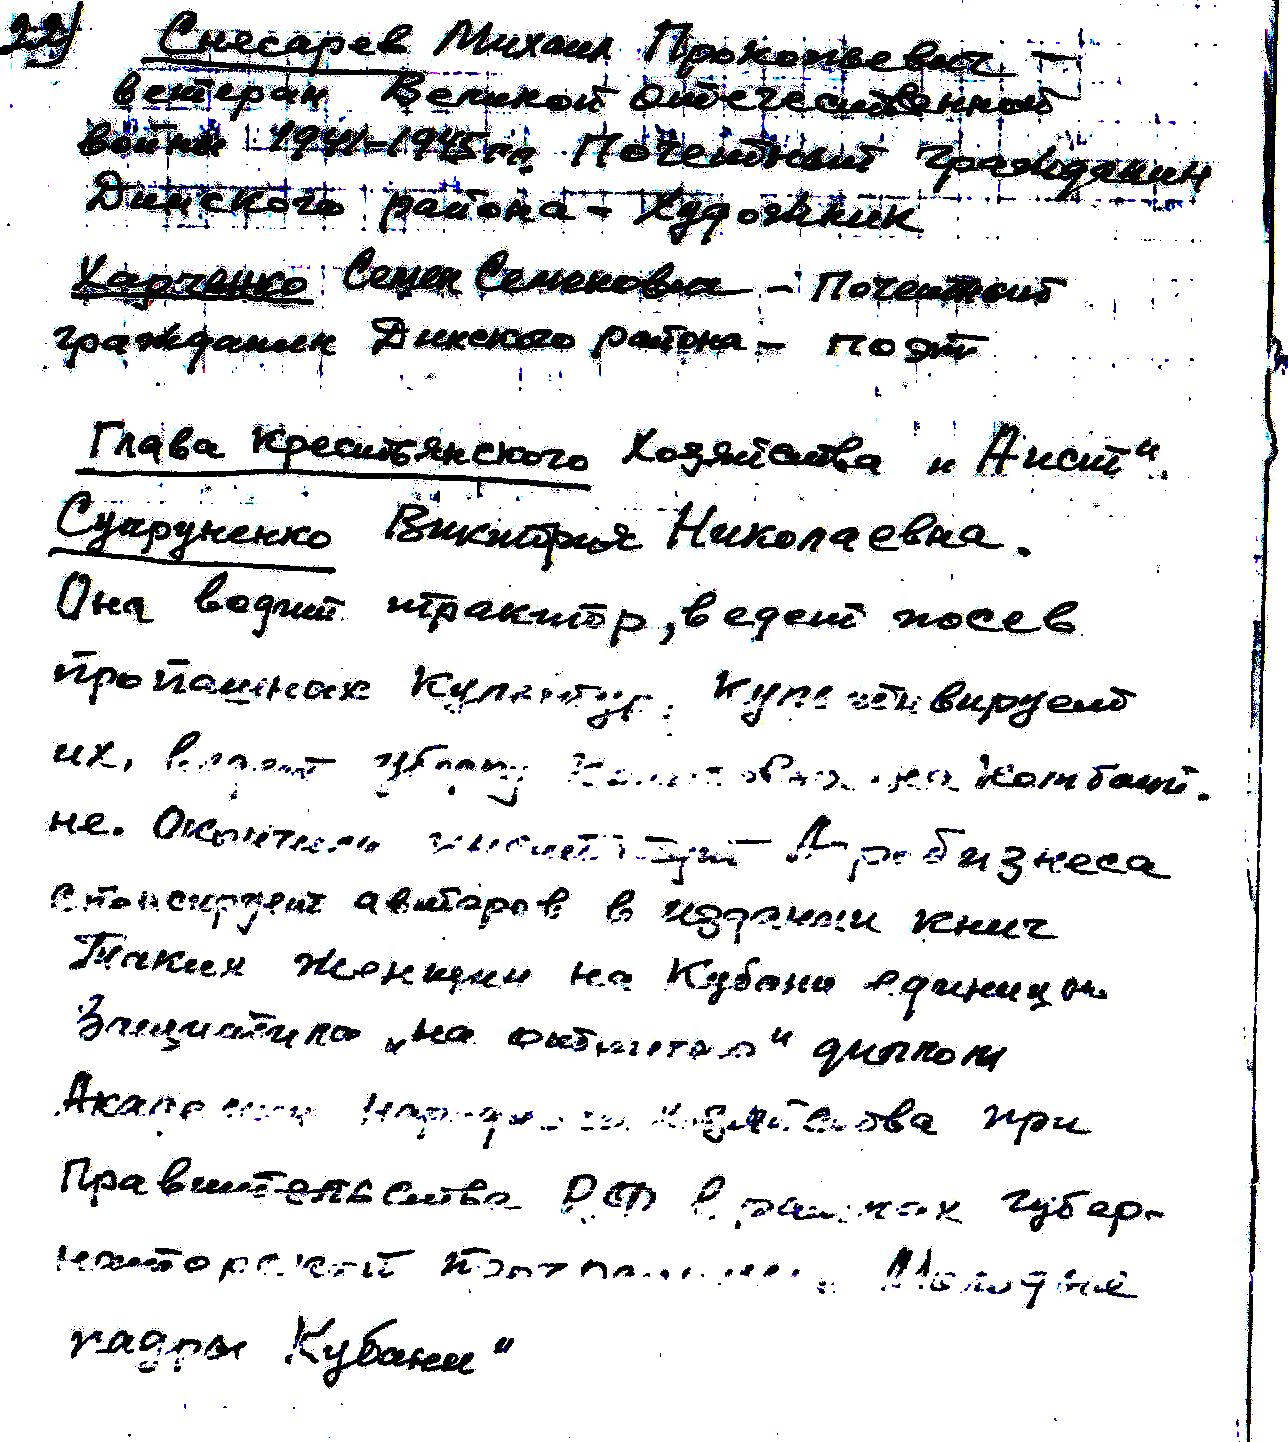 22) Снесарев Михаил Прокопьевич –
ветеран Великой Отечественной
войны 1941–1945 гг. Почетный гражданин
Динского района – Художник
Харченко Семен Семенович – Почетный
гражданин Динского района – поэт
Глава Крестьянского Хозяйства „Аист“.
Супруненко Виктория Николаевна.
Она водит трактор, ведет посев
пропашных культур. Культивирует
их, ведет уборку на комбай-
не. Окончила институт Агробизнеса
Спонсирует авторов в издании книг
Таких женщин на Кубани единицы
Защитила „на отлично“ диплом
Академии народного хозяйства при
Правительстве РФ в рамках губер-
наторской программы „Молодые
кадры Кубани“